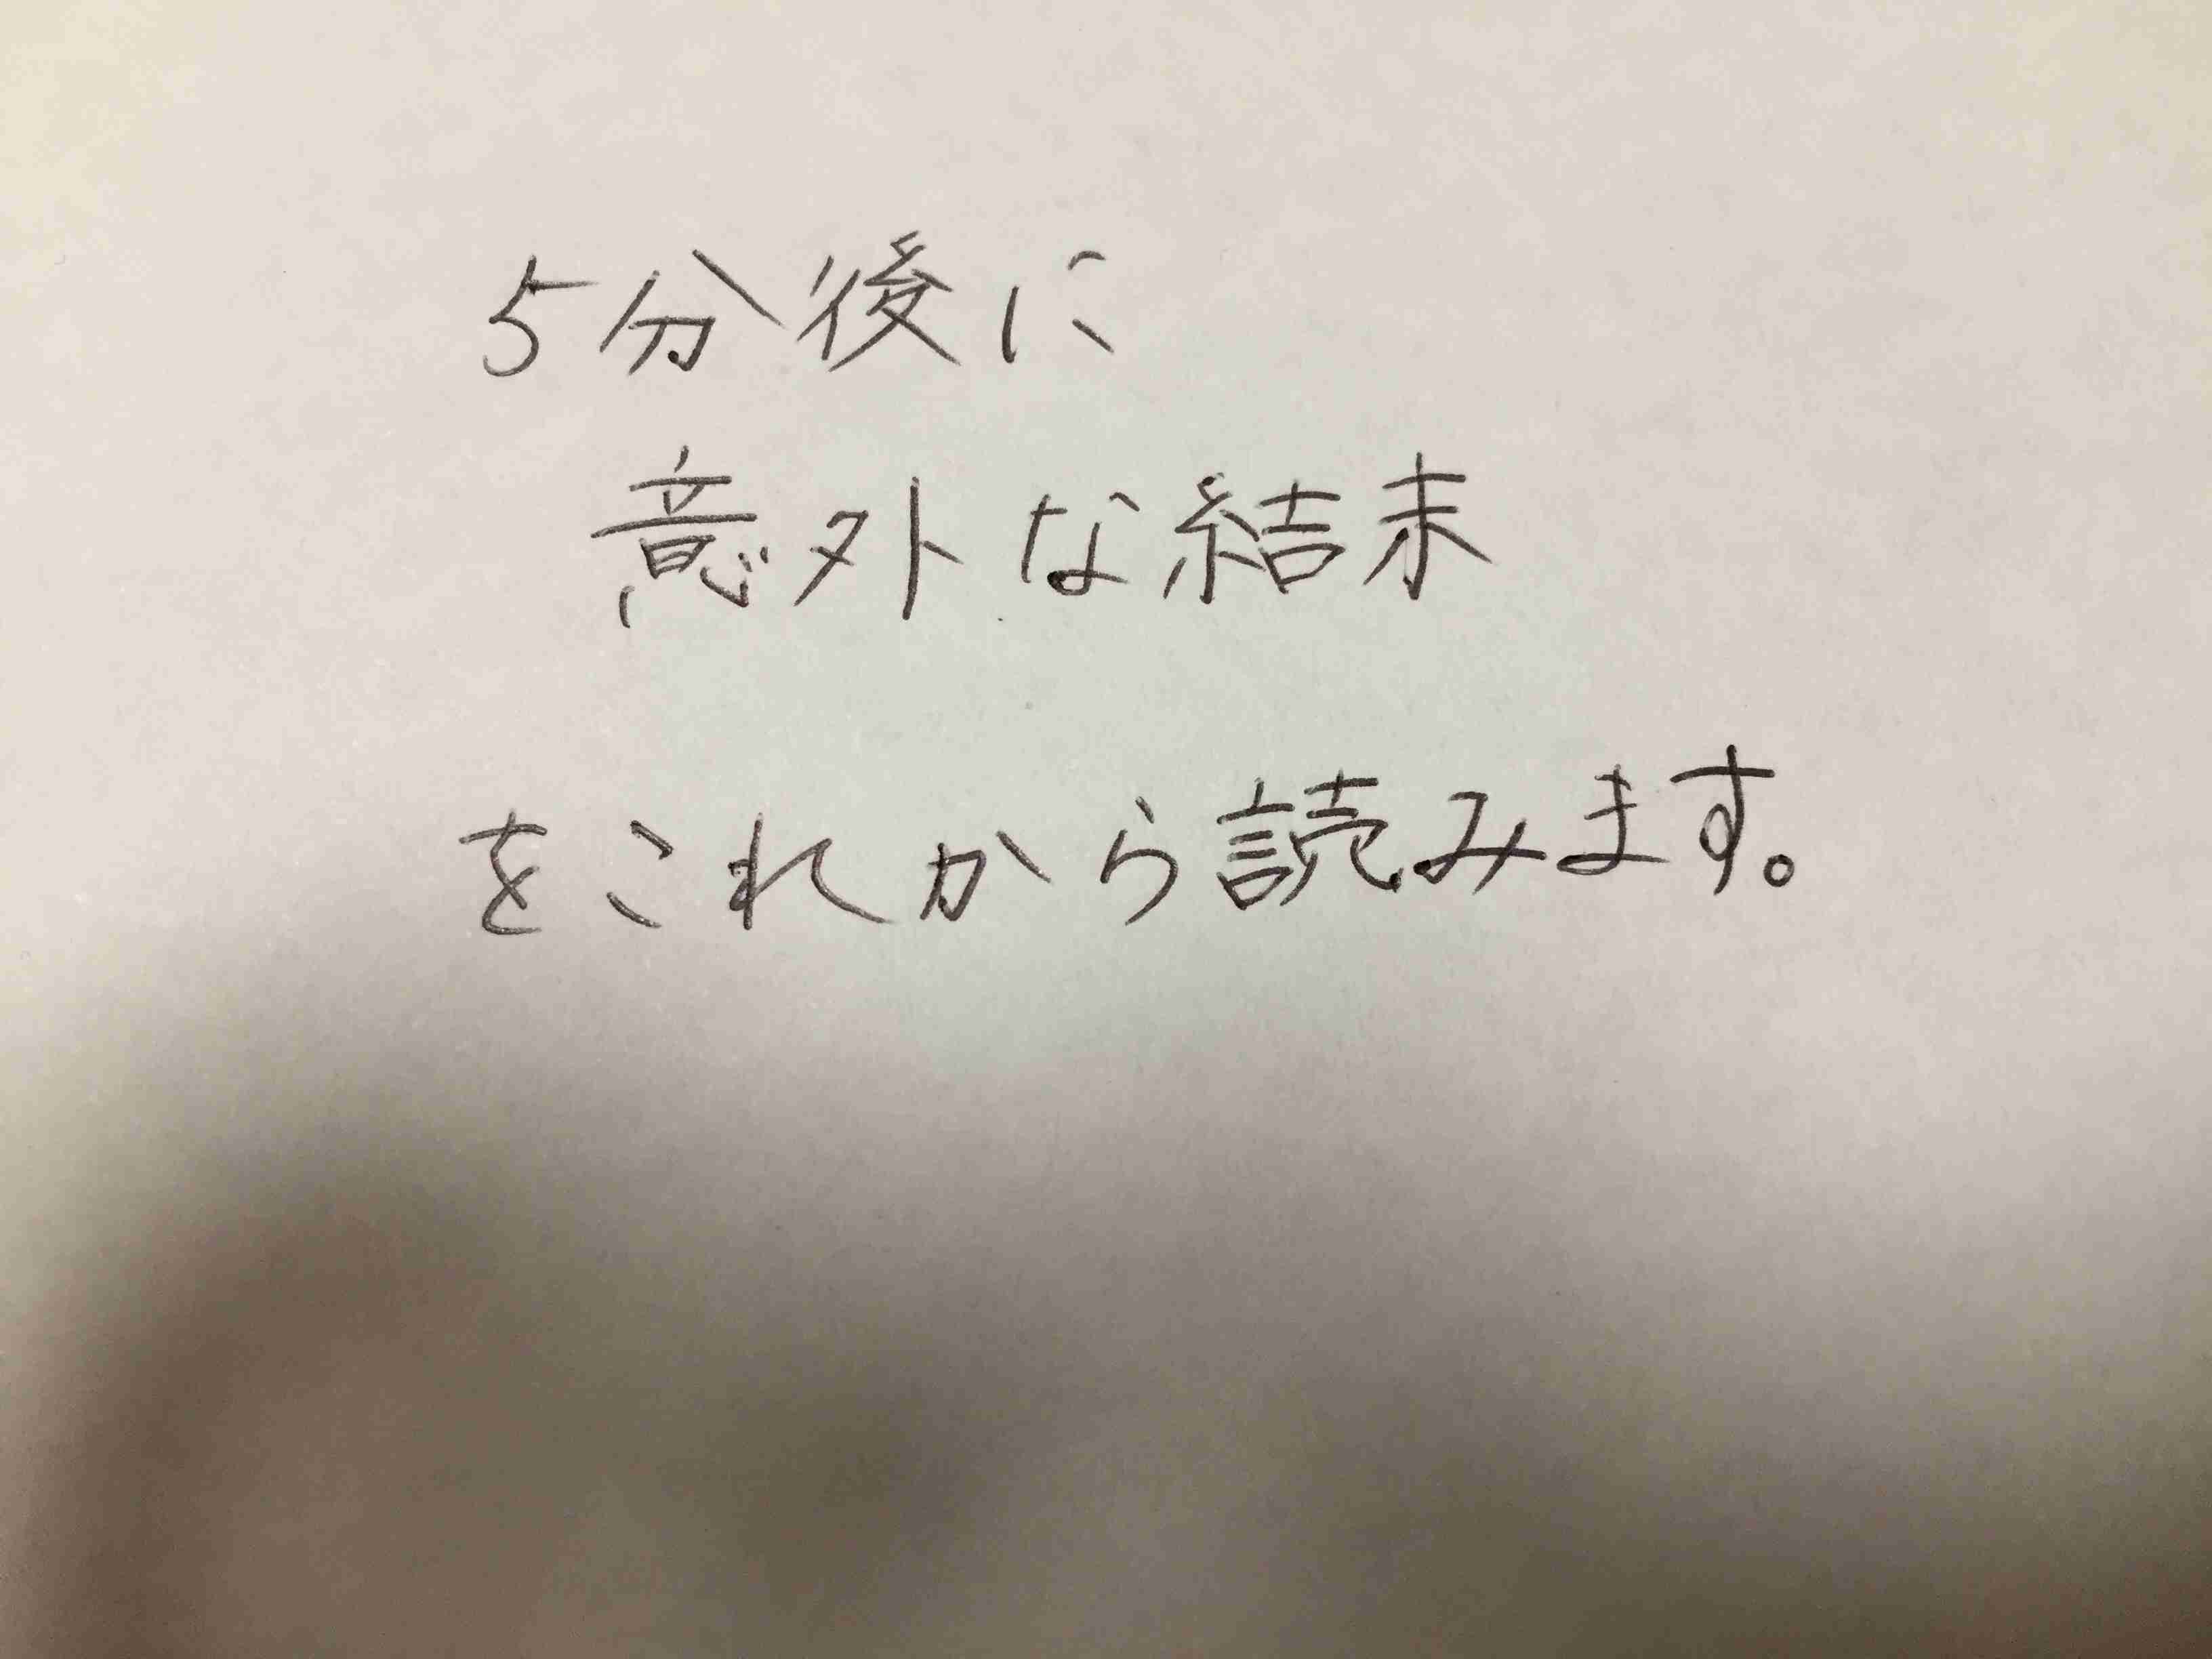 5分後に
意外な結末
をこれから読みます。